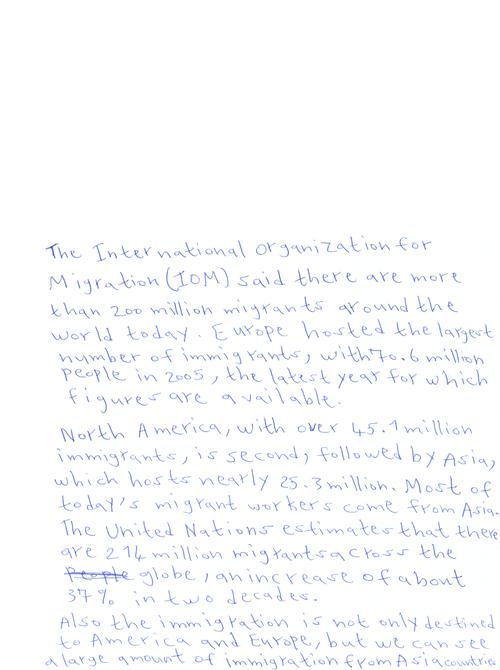 The International Organization for
Migration (IOM) said there are more
than 200 million migrants around the
world today. Europe hosted the largest
number of immigrants, with 70.6 million
people in 2005, the latest year for which
figures are available.
North America, with over 45.1 million
immigrants, is second, followed by Asia,
which hosts nearly 25.3 million. Most of
today's migrant workers come from Asia.
The United Nations estimates that there
are 214 million migrants across the
People globe, an increase of about
37% in two decades.
Also the immigration is not only destined
to America and Europe, but we can see
a large amount of immigration from Asia countrie